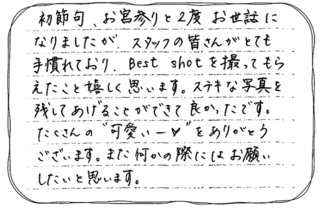 初節句、お宮参りと2度お世話に
なりましたが、スタッフの皆さんがとても
手慣れており、Best shotを撮ってもら
えたこと嬉しく思います。ステキな写真を
残してあげることができて良かったです。
たくさんの"可愛いー♥"をありがとう
ございます。また何かの際にはお願い
したいと思います。